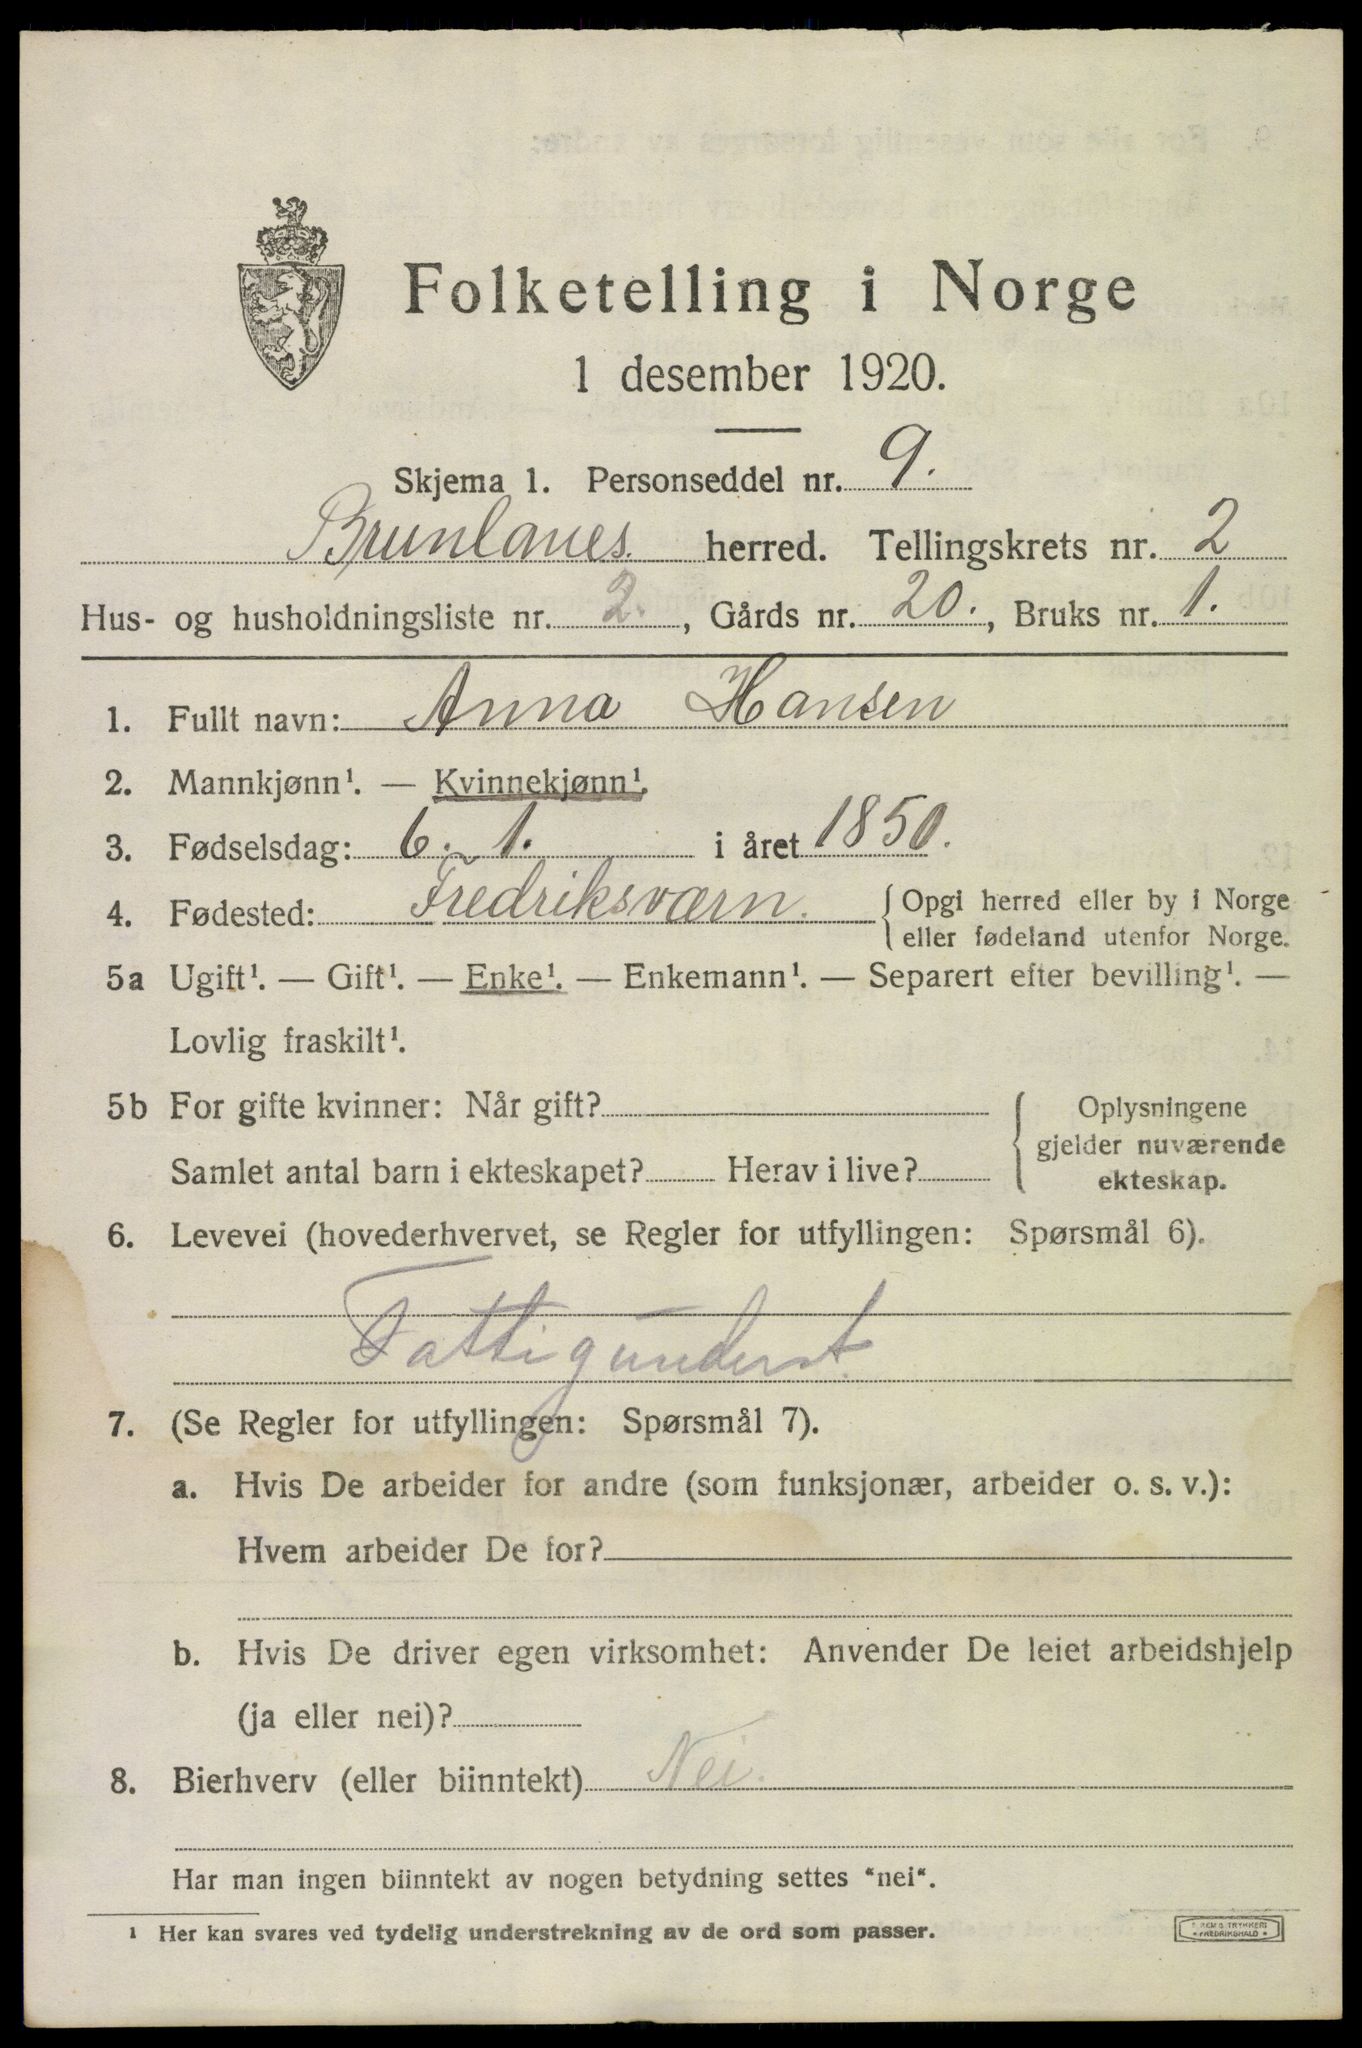 Folketelling i Norge
1 desember 1920.
Skjema 1. Personseddel nr. 9.
Brunlanes. herred. Tellingskrets nr. 2
Hus- og husholdningsliste nr. 2., Gårds nr. 20., Bruks nr. 1.
1. Fullt navn: Anna Hansen
2. Mannkjønn¹. — Kvinnekjønn¹.
3. Fødselsdag: 6. 1. i året 1850.
4. Fødested: Fredriksværn. { Opgi herred eller by i Norge
eller fødeland utenfor Norge.
5a Ugift¹. — Gift¹. — Enke¹. — Enkemann¹. — Separert efter bevilling¹. —
Lovlig fraskilt¹.
5b For gifte kvinner: Når gift?
Samlet antal barn i ekteskapet? Herav i live?
Oplysningene
gjelder nuværende
ekteskap.
6. Levevei (hovederhvervet, se Regler for utfyllingen: Spørsmål 6).
Fattigunderst.
7. (Se Regler for utfyllingen: Spørsmål 7).
a. Hvis De arbeider for andre (som funksjonær, arbeider o. s. v.):
Hvem arbeider De for?
b. Hvis De driver egen virksomhet: Anvender De leiet arbeidshjelp
(ja eller nei)?
8. Bierhverv (eller biinntekt) Nei.
Har man ingen biinntekt av nogen betydning settes "nei".
¹ Her kan svares ved tydelig understrekning av de ord som passer.